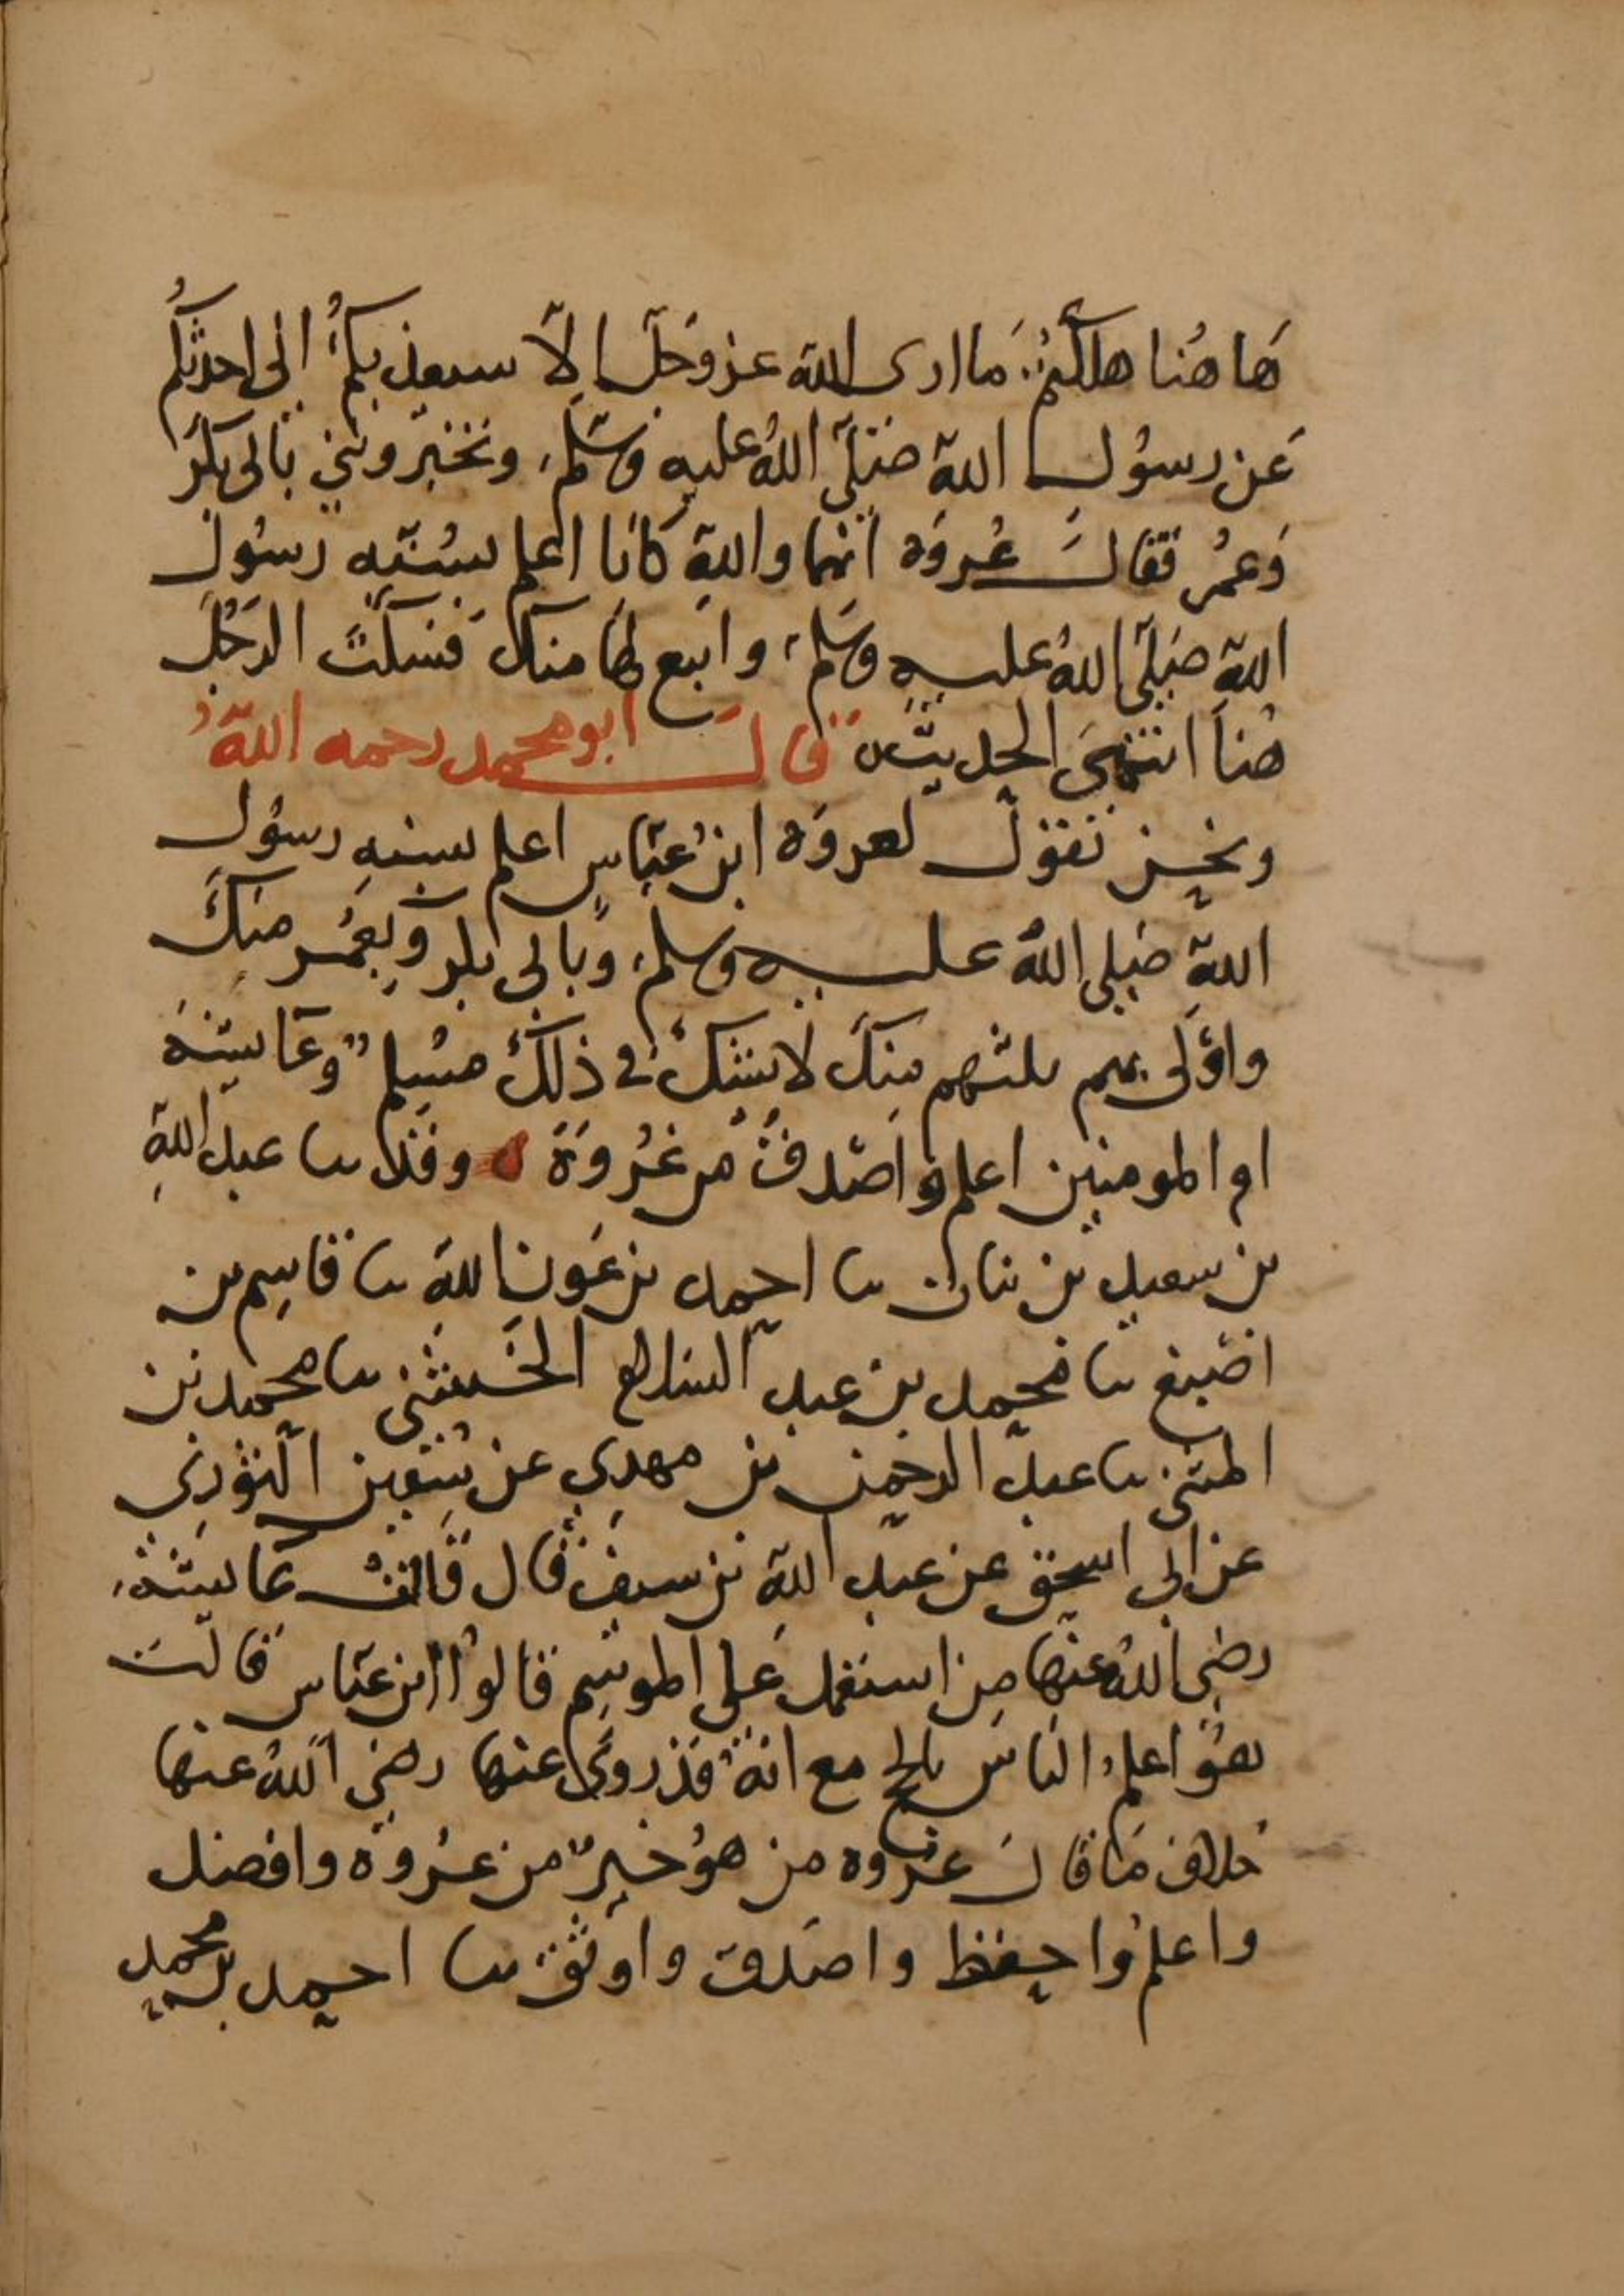 هَا هُنا هلكتُم مَا ارى الله عز وَجَلّ اِلّا سيعذبكُم انى احدثكُم
عَن رسُول اللهِ صَلّى اللهُ عليهِ وسَلّم وتخبرُونني بابى بكر
وَعمُر فقالَ عُروَة انهما واللهِ كانا اعلم بسُنّتهِ رسُول
اللهِ صَلّى اللهُ عليه وسَلم واتبع لهَا منكَ فسَكتَ الرَجُل
هُناَ انتَهَى الحديثُ قالَ ابو محمد رحمه اللهُ
ونحن نقول لعروَة ابن عبّاسٍ اعلم بسنهِ رسُول
اللهِ صَلى اللهُ عليه وسلم وَبابى بكر وبعمُر منكَ
واوْلى بهم ثلثتهم مِنكَ لا يشكُ في ذلكَ مسْلم وعَايشَة
ام المومنين اعلم واصْدقُ من عُروَةَ وقد ثنا عبد اللهِ
بن سعيد بن نبات ثنا احمد بن عَون اللهِ ثنا قاسِم بن
اصْبغ ثنا محمد بن عبد السلام الخُشنى ثنا محمد بن
المثنى ثنا عبد الرحمن بن مهدِي عن سُفين الثورِي
عن ابى اسحق عن عبدِ اللهِ بن سيف قال قالتْ عَايشة
رضِى اللهُ عنها من استعمل عَلى الموسِم قالوُا ابن عبّاس قالت
هوَ اعلم الناس بالحج مع انهُ قد روى عنها رضِي اللهُ عنها
خلاف مَا قالَ عروه من هوُ خيرٌ من عُروة وافضل
واعلمُ واحفظ واصَدق واوثق ثنا احمد بن محمد